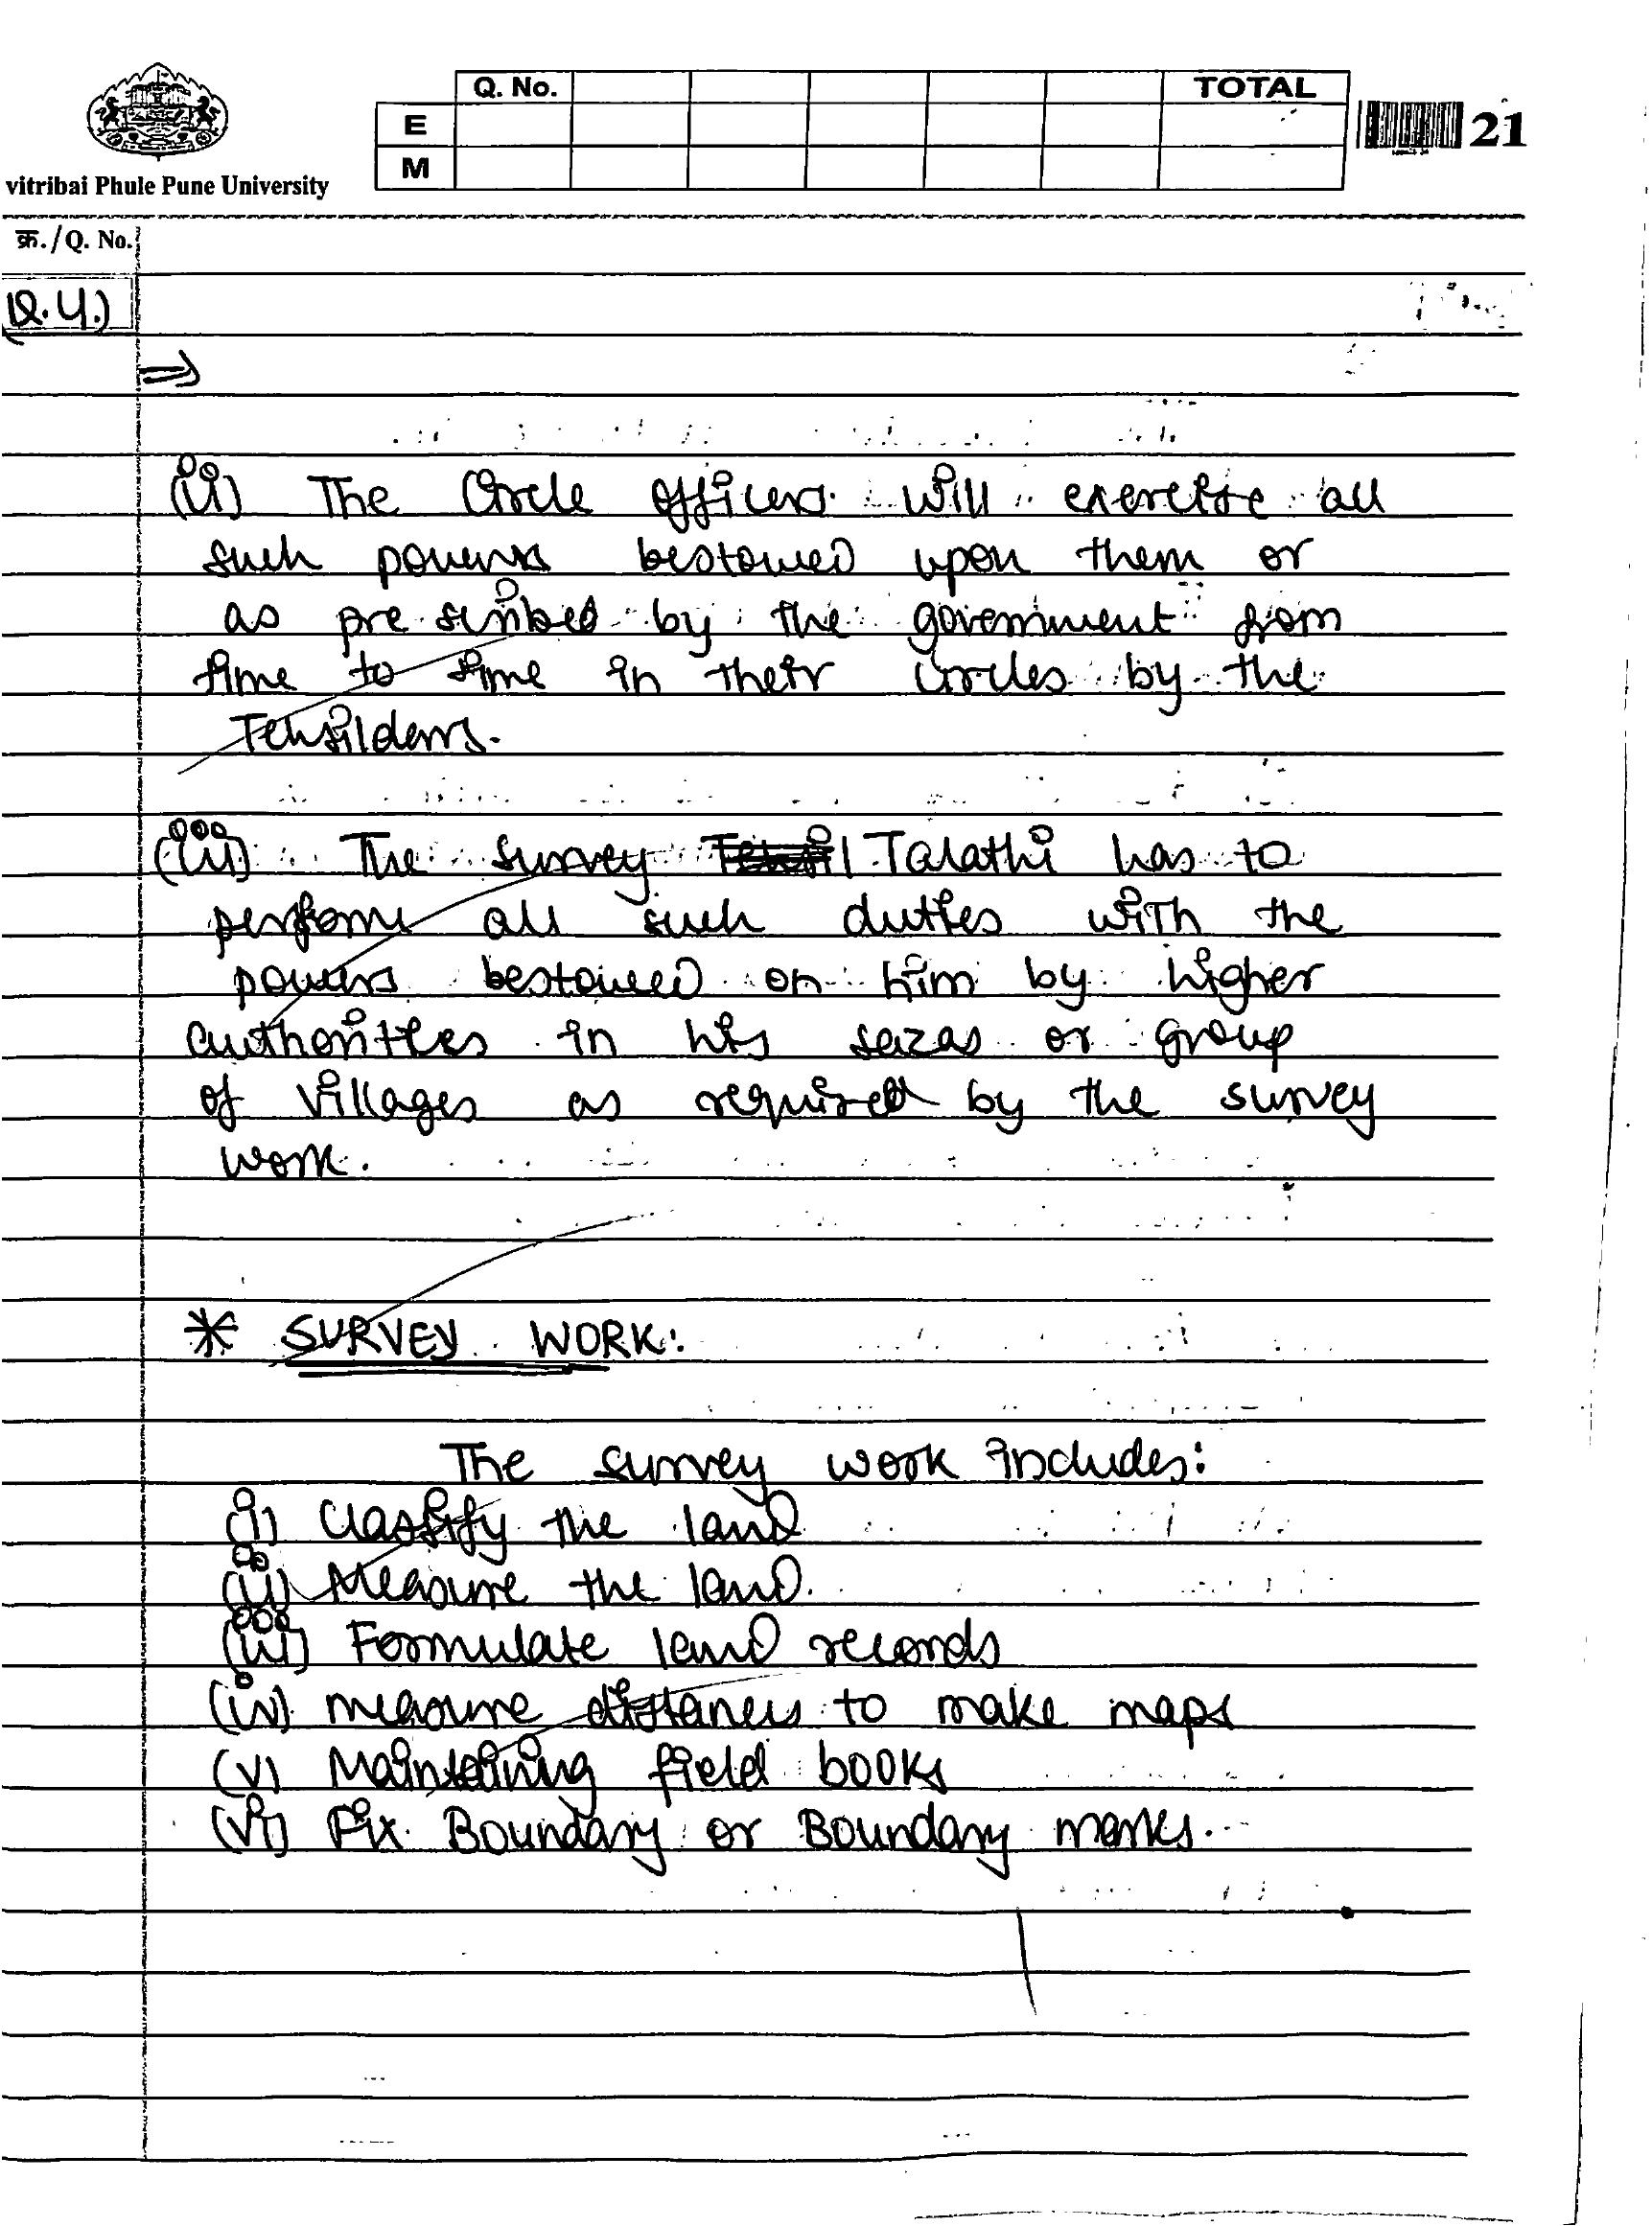 Q. No. TOTAL
E
M
21
vitribai Phule Pune University
क्र./Q. No.
Q.4.)
⇒
(ii) The Circle officers will exercise all
such powers bestowed upon them or
as prescribed by the government from
time to time in their circles by the
Tehsildars.
(iii) The survey Tehsil Talathi has to
perform all such duties with the
powers bestowed on him by higher
authorities in his sazas or group
of villages as required by the survey
work.
* SURVEY WORK:
The survey work includes:
(i) Classify the land
(ii) Measure the land.
(iii) Formulate land records
(iv) measure distances to make maps
(v) Maintaining field books
(vi) Fix Boundary or Boundary marks.